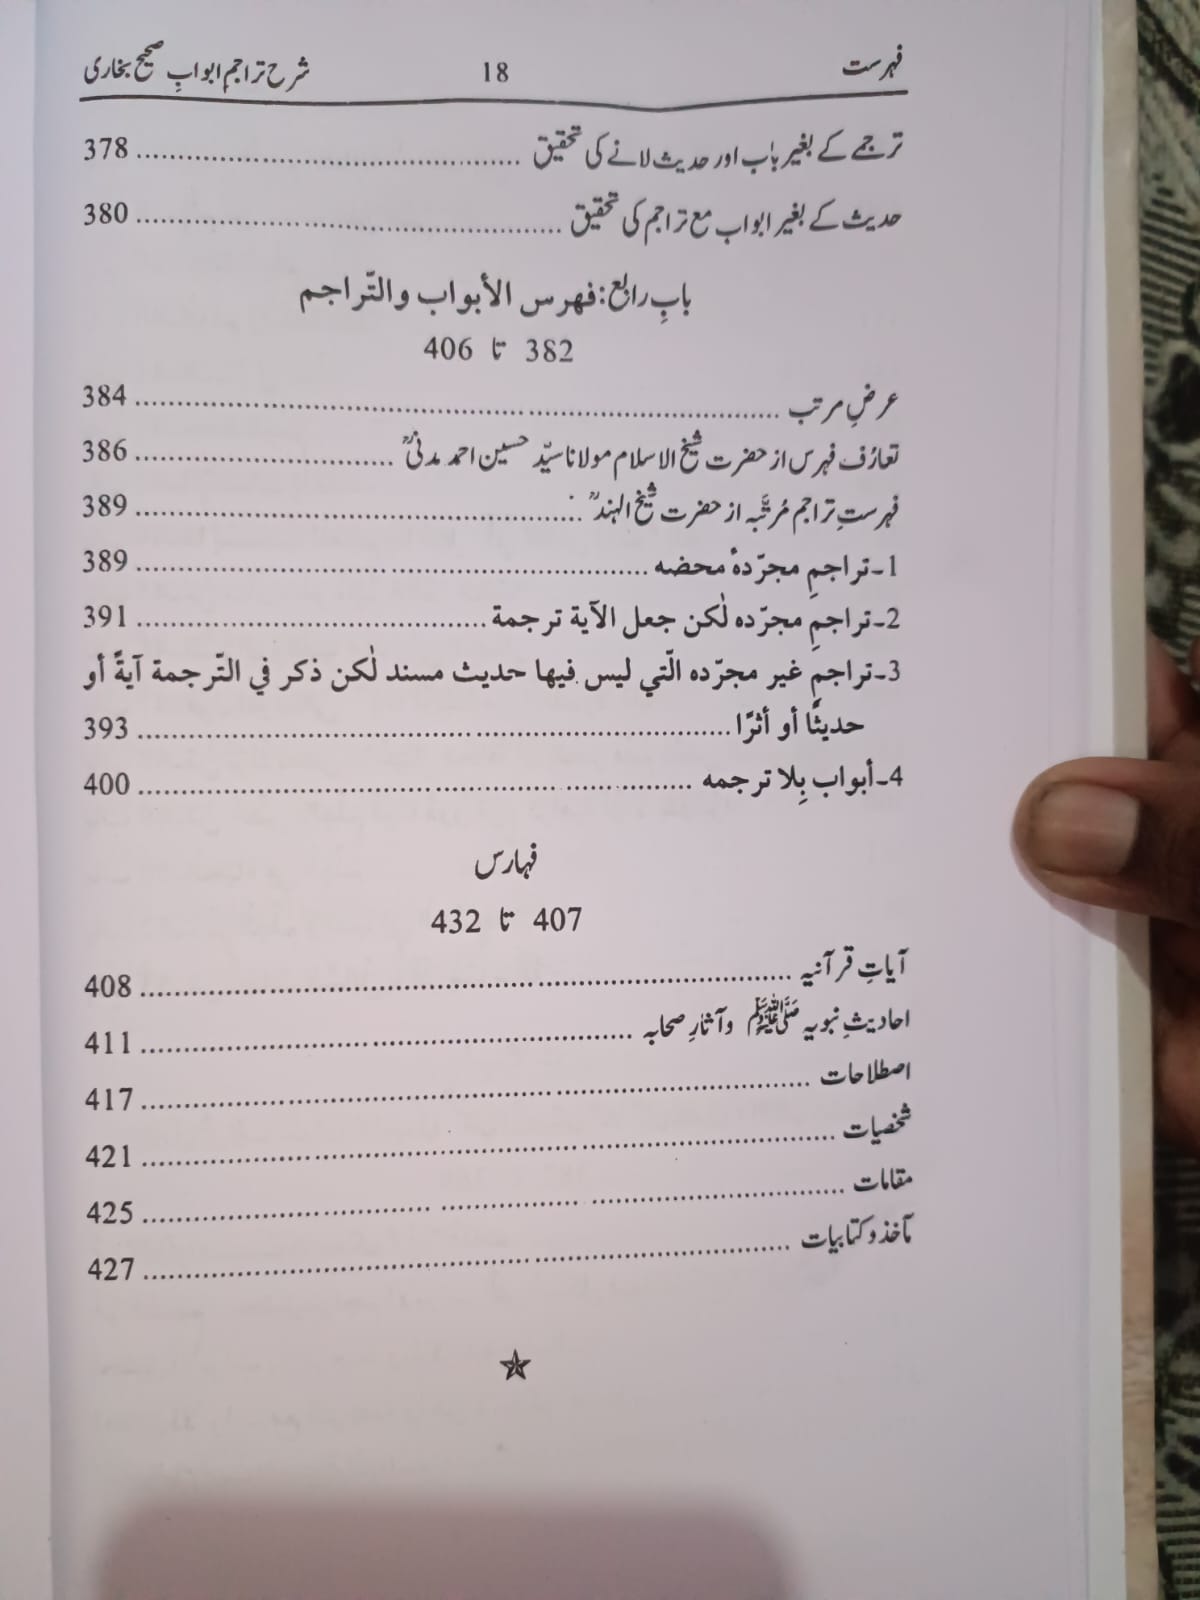 فہرست 18 شرح تراجم ابوابِ صحیح بخاری
ترجمے کے بغیر باب اور حدیث لانے کی تحقیق ........ 378
حدیث کے بغیر ابواب مع تراجم کی تحقیق ........ 380
بابِ رابع: فهرس الأبواب والتّراجم
382 تا 406
عرضِ مرتب ........ 384
تعارُف فہرس از حضرت شیخ الاسلام مولانا سیّد حسین احمد مدنیؒ ........ 386
فہرستِ تراجم مُرتَّبہ از حضرت شیخ الہندؒ ........ 389
1۔تراجمِ مجرّدہٗ محضہ ........ 389
2۔تراجمِ مجرّدہ لٰكن جعل الآية ترجمة ........ 391
3۔تراجمِ غیر مجرّدہ الّتي ليس فيها حديث مسند لٰكن ذكر في التّرجمة آيةً أو
حديثًا أو أثرًا ........ 393
4۔أبواب بِلا ترجمه ........ 400
فہارس
407 تا 432
آیاتِ قرآنیہ ........ 408
احادیثِ نبویہ ﷺ وآثارِ صحابہ ........ 411
اصطلاحات ........ 417
شخصیات ........ 421
مقامات ........ 425
مآخذ و کتابیات ........ 427